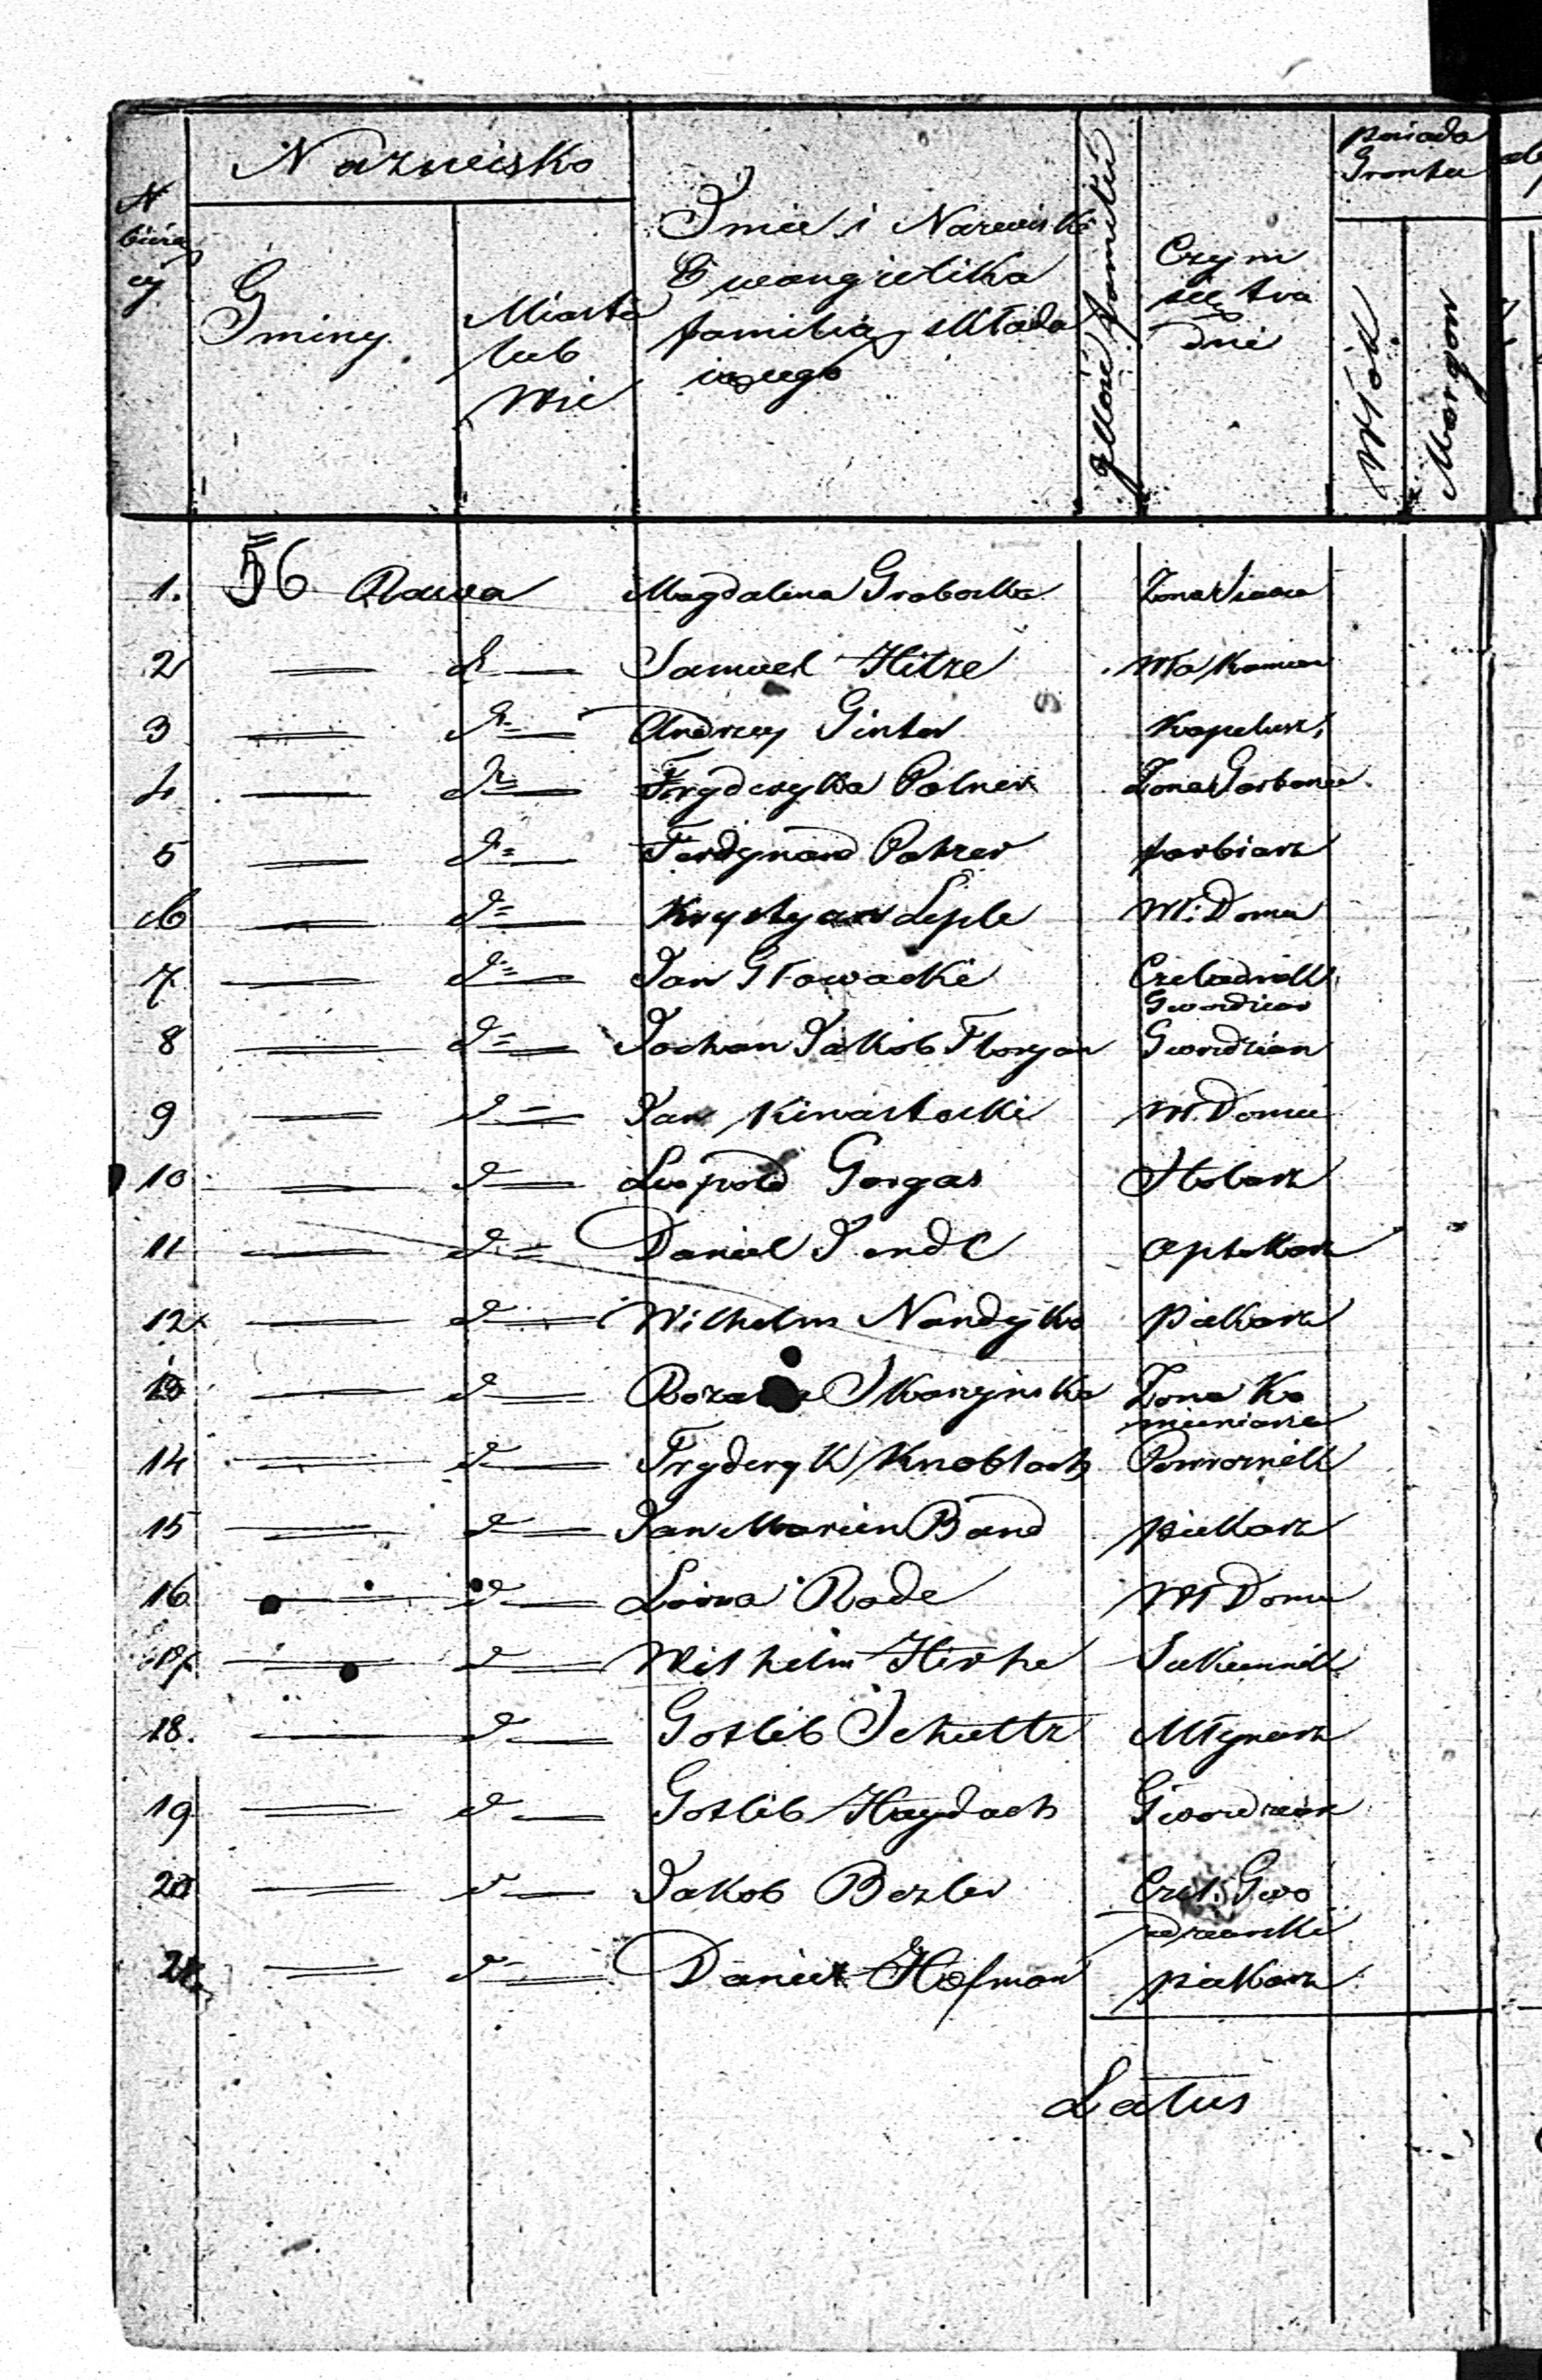 Nazwisko
N
bieżą
cy
Gminy
Miasta
lub
Wsi
Imie i Nazwisko
Ewangielika
familią składa
iącego
Ilość familii
Czym
się tru
dni
posiada
Gruntu
Włók
Morgow
1. 56 Rawa Magdalena Grabocka Żona
2 — d — Samuel Hitze Wła Kamien
3 — d — Andrzey Ginter Kapelusz
4 — d — Fryderyka Polner Żona Garbarza
5 — d — Ferdynand Patzer farbiarz
6 — d — Krystyan Leple W. Domu
7 — d — Jan Głowacki Czeladnik
Gwoździar
8 — d — Johan Jakob Floryan Gwoździarz
9 — d — Jan Kiwartocki W. Domu
10 — d — Leopold Gorgas Stolarz
11 — d — Daniel Jendl Aptekarz
12 — d — Wilhelm Nandyko piekarz
13 — d — Skarzynska Żona Ka
mieniarza
14 — d — Fryderyk Knobloch Powroznik
15 — d — Jan Marcin Band piekarz
16 — d — Lovisa Rode W Domu
17 — d — Wilhelm Hirhe Sukiennik
18. — d — Gotlib Schultz Młynarz
19 — d — Gotlib Haydach Gwoździarz
20 — d — Jakob Bezler Czel. Gwo
ździarski
21 — d — Daniel Hofman piekarz
Latus